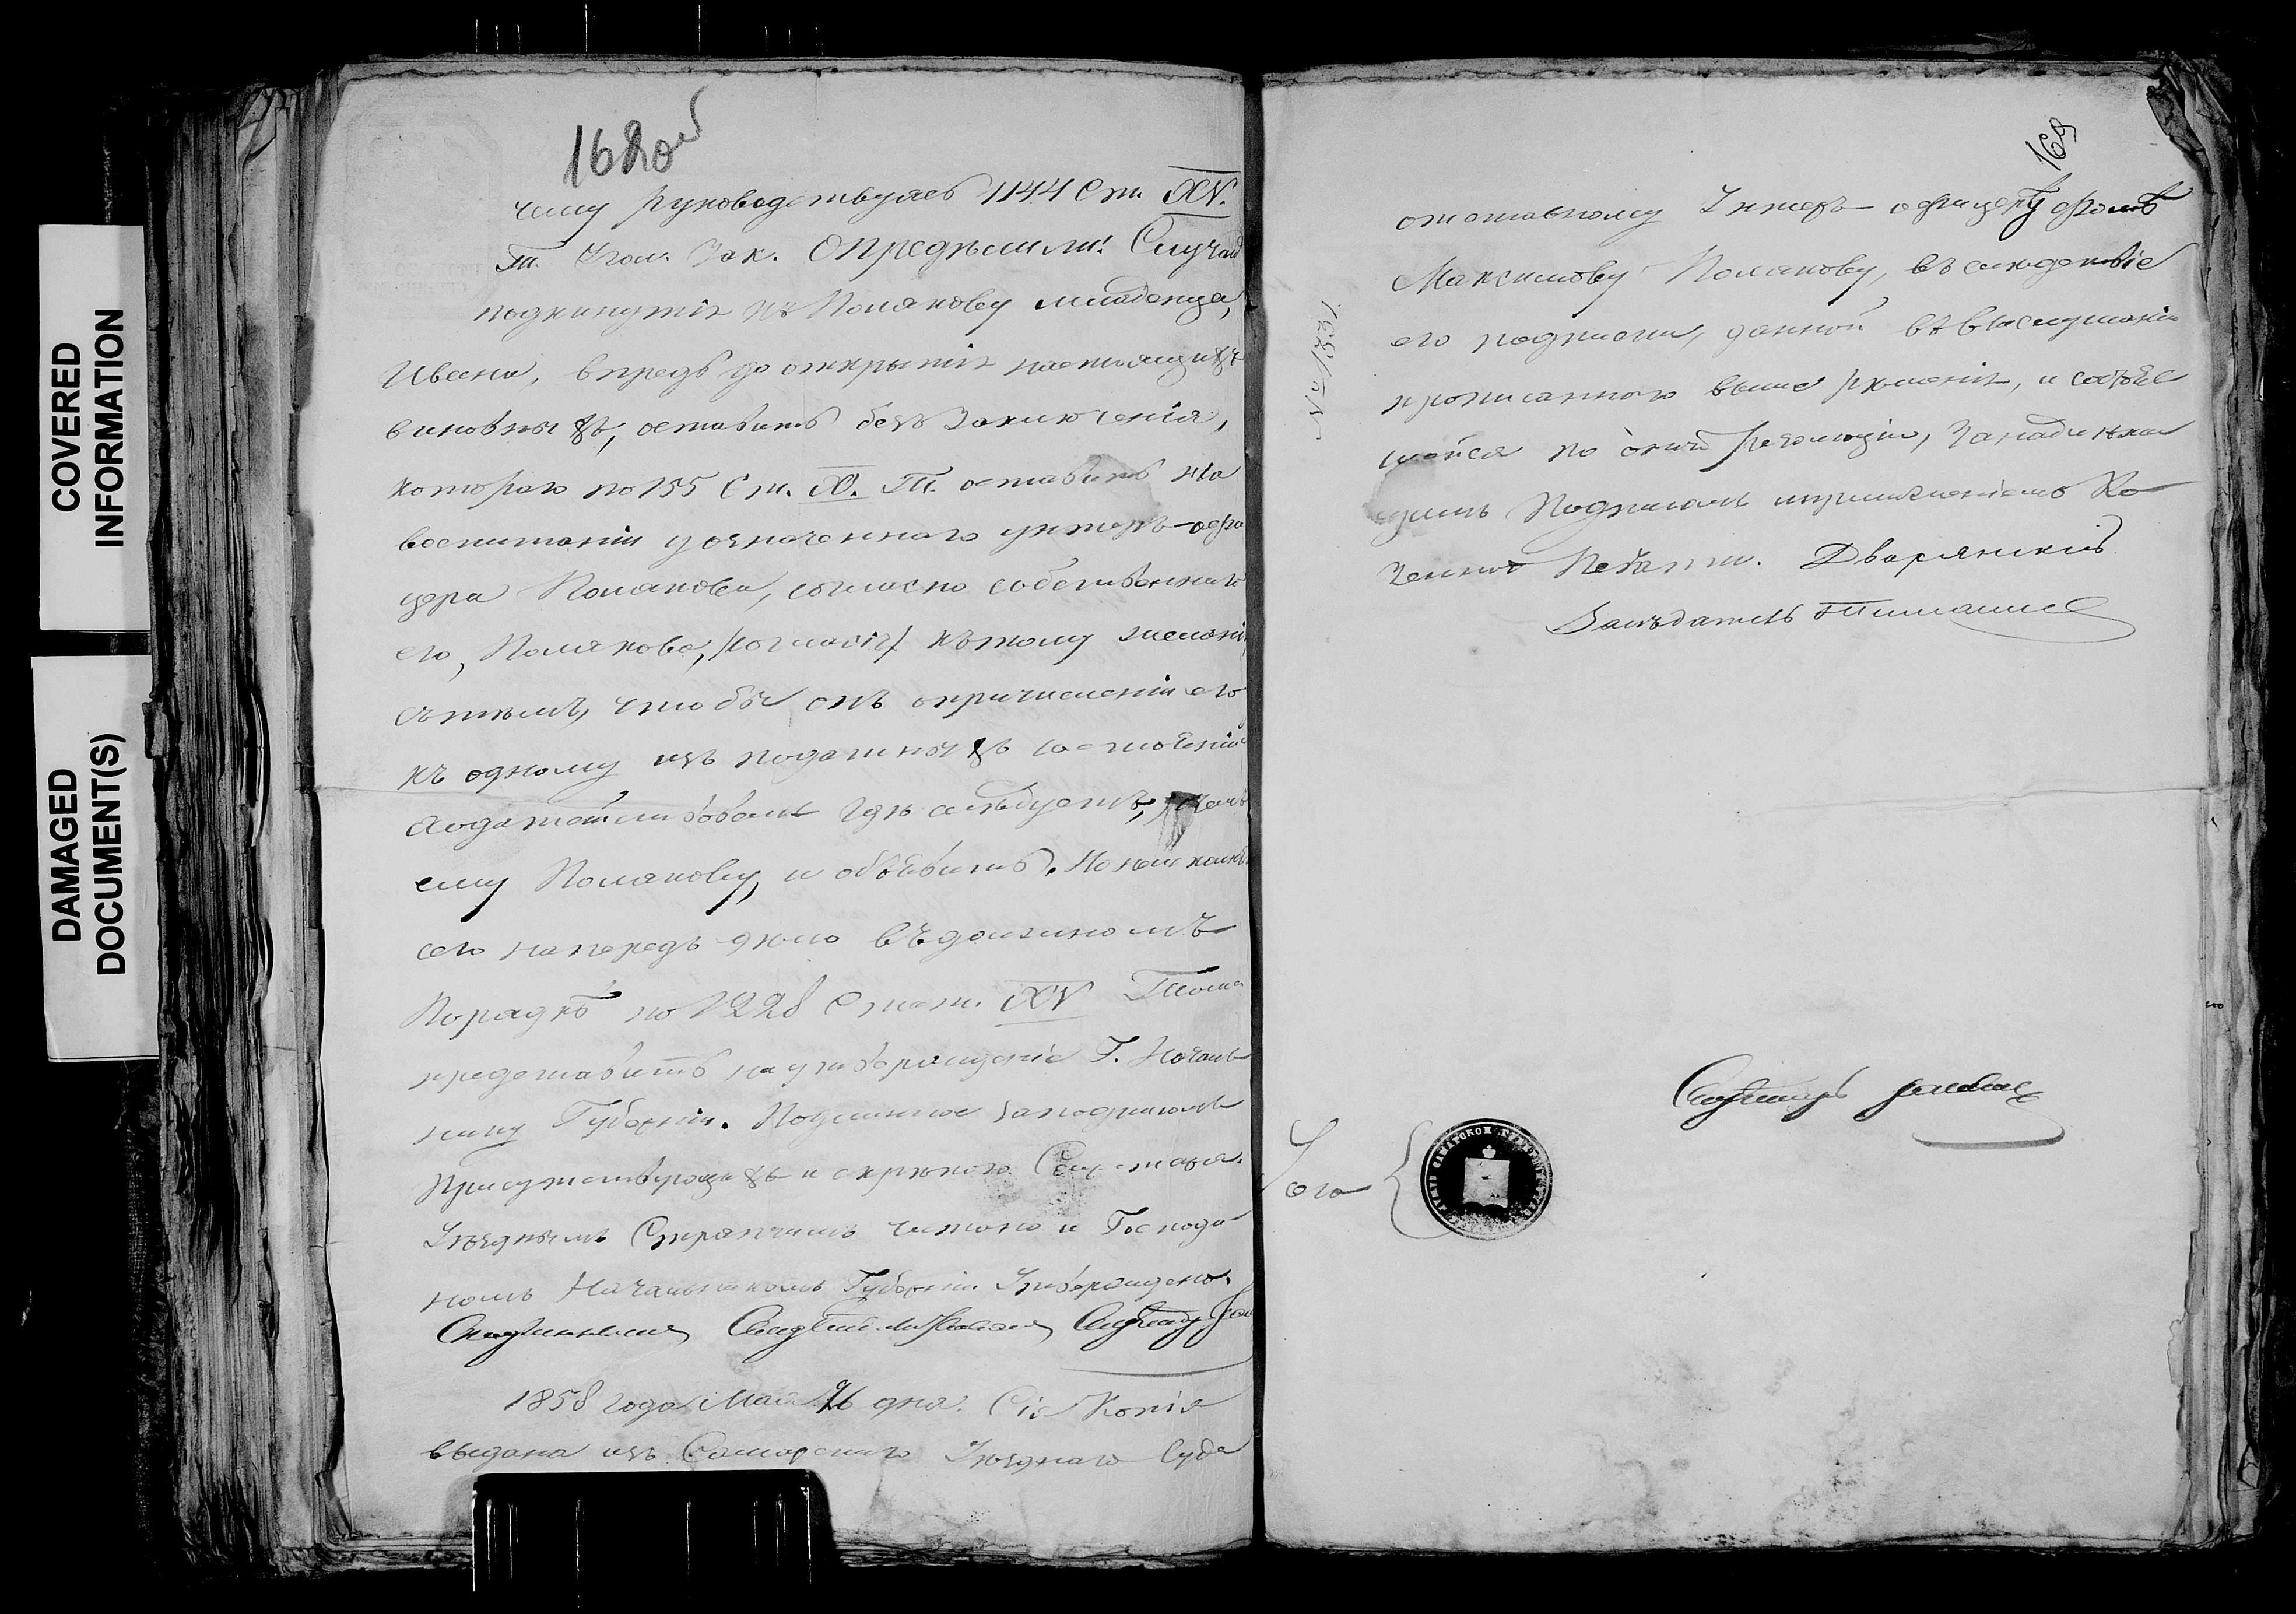 COVERED
INFORMATION
DAMAGED
DOCUMENT(S)
168об
чему руководствуясь 1144 Ст. XV.
Т. Угол. Зак. Опредѣлили: Случай
подкинутія къ Полякову младенца,
Ивана, впредь до открытія настоящихъ
виновныхъ, оставить безъ заключенія,
котораго по 155 Ст. X. Т. оставить на
воспитаніи у означеннаго унтеръ-офи
цера Полякова, согласно собственнаго
его, Полякова, /согласія/ къ тому желанія
съ тѣмъ, чтобы онъ о причисленіи его
къ одному изъ податныхъ состояній
ходатайствовалъ гдѣ слѣдуетъ,
ему Полякову, и объявить. Но не
сего напередъ дѣло въ должномъ
Порядкѣ по 1228 Стат. XV Тома
представить на утвержденіе Г. Началь
нику Губерніи. Подлинное за подписомъ
Присутствующихъ и скрѣпою Секретаря.
Уѣзднымъ Стряпчимъ читано и Господи
номъ Начальникомъ Губерніи Утверждено.
1858 года Мая 26 дня. Сія Копія
выдана изъ Самарскаго Уѣзднаго Суда
169
отставному Унтеръ-офицеру
Максимову Полякову, въ слѣдствіе
его подписки, данной въ выслушаніи
прописаннаго выше рѣшенія, и состояв
шейся по оной резолюціи, за надлежа
щимъ Подписомъ и приложеніемъ Ка
зенной Печати. Дворянскій
Засѣдатель